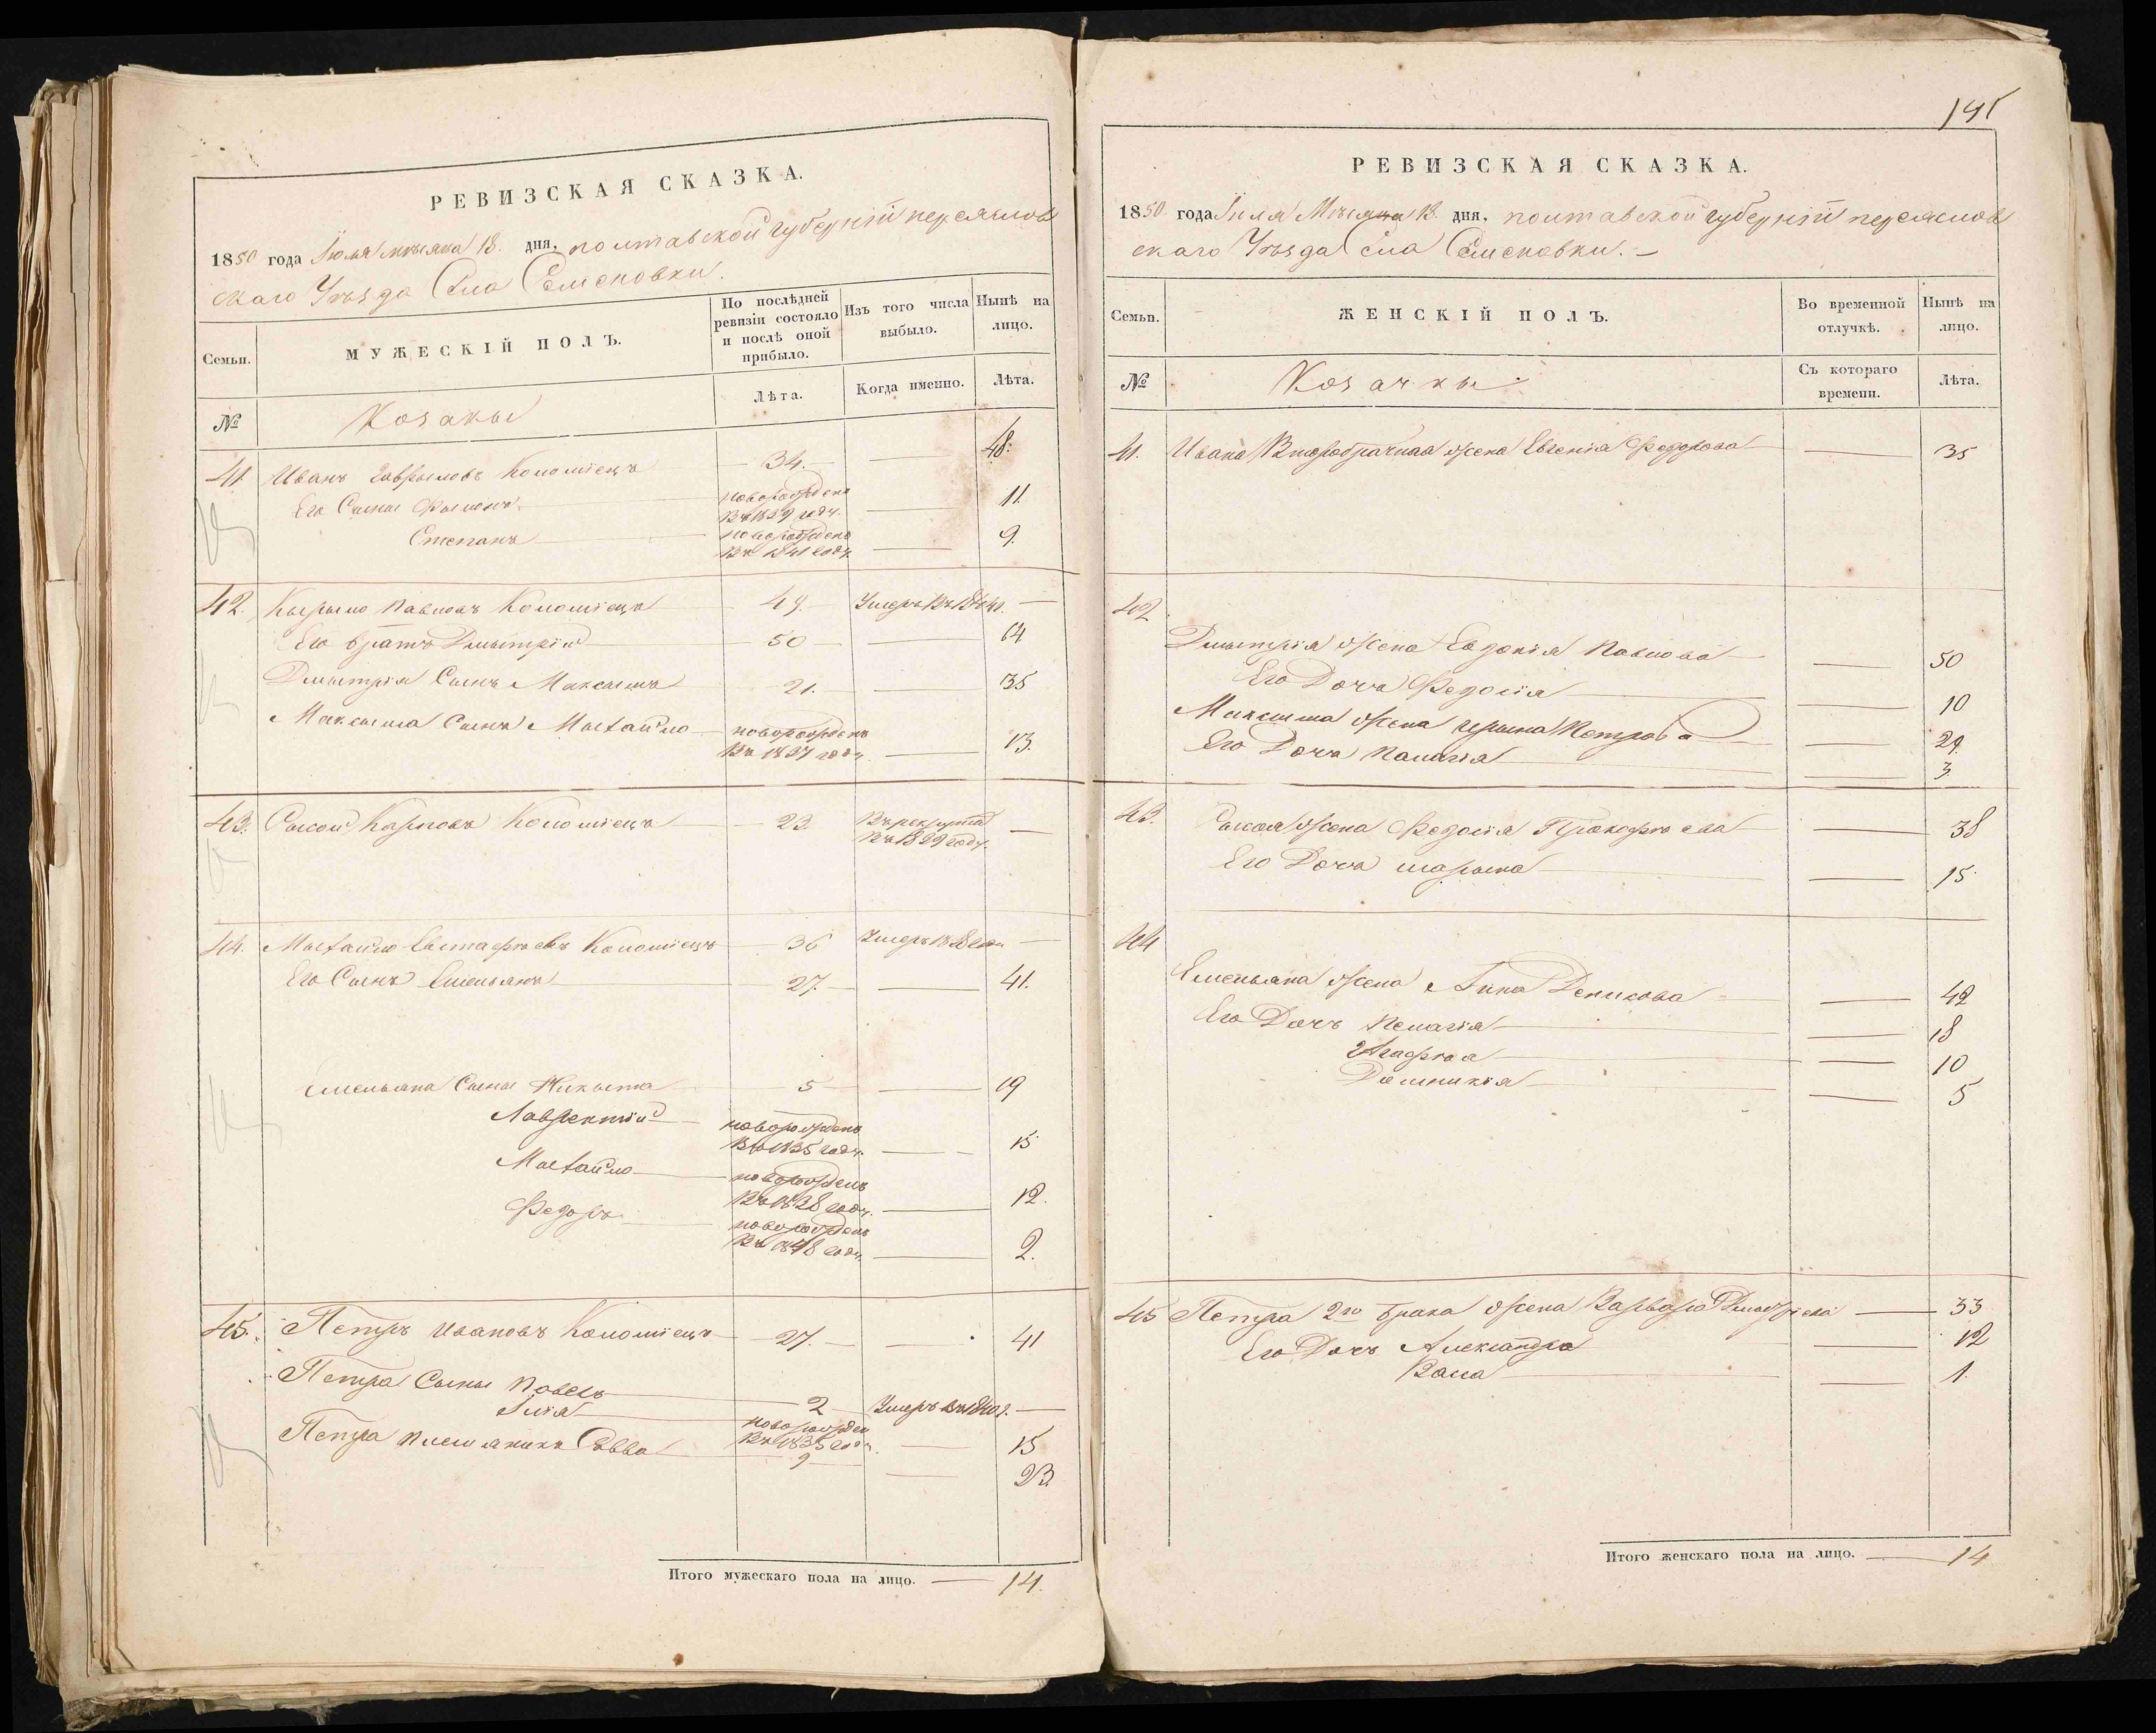 РЕВИЗСКАЯ СКАЗКА.
1850 года Іюля мѣсяца 18. дня, полтавской губерніи переяслов
скаго Уѣзда Села Семеновки.
Семьи.
МУЖЕСКІЙ ПОЛЪ.
По послѣдней ревизіи состояло и послѣ оной прибыло.
Изъ того числа выбыло.
Нынѣ на лицо.
№
Козакы
Лѣта.
Когда именно.
Лѣта.
41 Иванъ Гаврыловъ Коломіецъ 34. 48.
Его Сыны Фылыпъ новорожденъ въ 1839 году. 11.
Степанъ новорожденъ въ 1841 году 9.
42. Кырыло Павловъ Коломіецъ 49. Умеръ въ 1844г.
Его братъ Дмытрій 50 64
Дмытрія Сынъ Максымъ 21. 35
Максыма Сынъ Мыхайло новорожденъ въ 1837 году 13.
43. Сысой Карповъ Коломіецъ 23. Въ рекрута въ 1839 году.
44. Мыхайло Евстафьевъ Коломіецъ 36 Умеръ
Его Сынъ Емельянъ 27. 41.
Емельяна Сыны Никыта 5 19
Лаврентій новорожденъ въ 1835 году. 15
Мыхайло новорожденъ въ 1838 году. 12.
Федоръ новорожденъ въ 1848 году. 2.
45. Петръ Ивановъ Коломіецъ 27. 41
Петра Сыны Павелъ 2 Умеръ въ 1840г.
Илія новорожден въ 1835 году. 15
Петра племянникъ Савва 9 23.
Итого мужескаго пола на лицо. 14.
141
РЕВИЗСКАЯ СКАЗКА.
1850 года Іюля Мѣсяца 18. дня, полтавской губерніи переяслов
скаго Уѣзда Села Семеновки.
Семьи.
ЖЕНСКІЙ ПОЛЪ.
Во временной отлучкѣ.
Нынѣ на лицо.
№
Козачкы
Съ котораго времени.
Лѣта.
41. Ивана Второбрачная жена Евгенія Федорова 35
42
Дмытрія жена Евдокія Павлова 50
Его Дочь Федосія 10
Максыма жена Ирына Петрова 29.
Его Дочь Палагія 3.
43. Сысоя жена Федосія Прокофьева 38
Его Дочь марына 15.
44
Емельяна жена Анна Денисова 42
Его Дочь Пелагія 18
Агафья 10
Домникія 5
45 Петра 2го брака жена Варвара 33
Его Дочь Александра 12
Васа 1.
Итого женскаго пола на лицо. 14